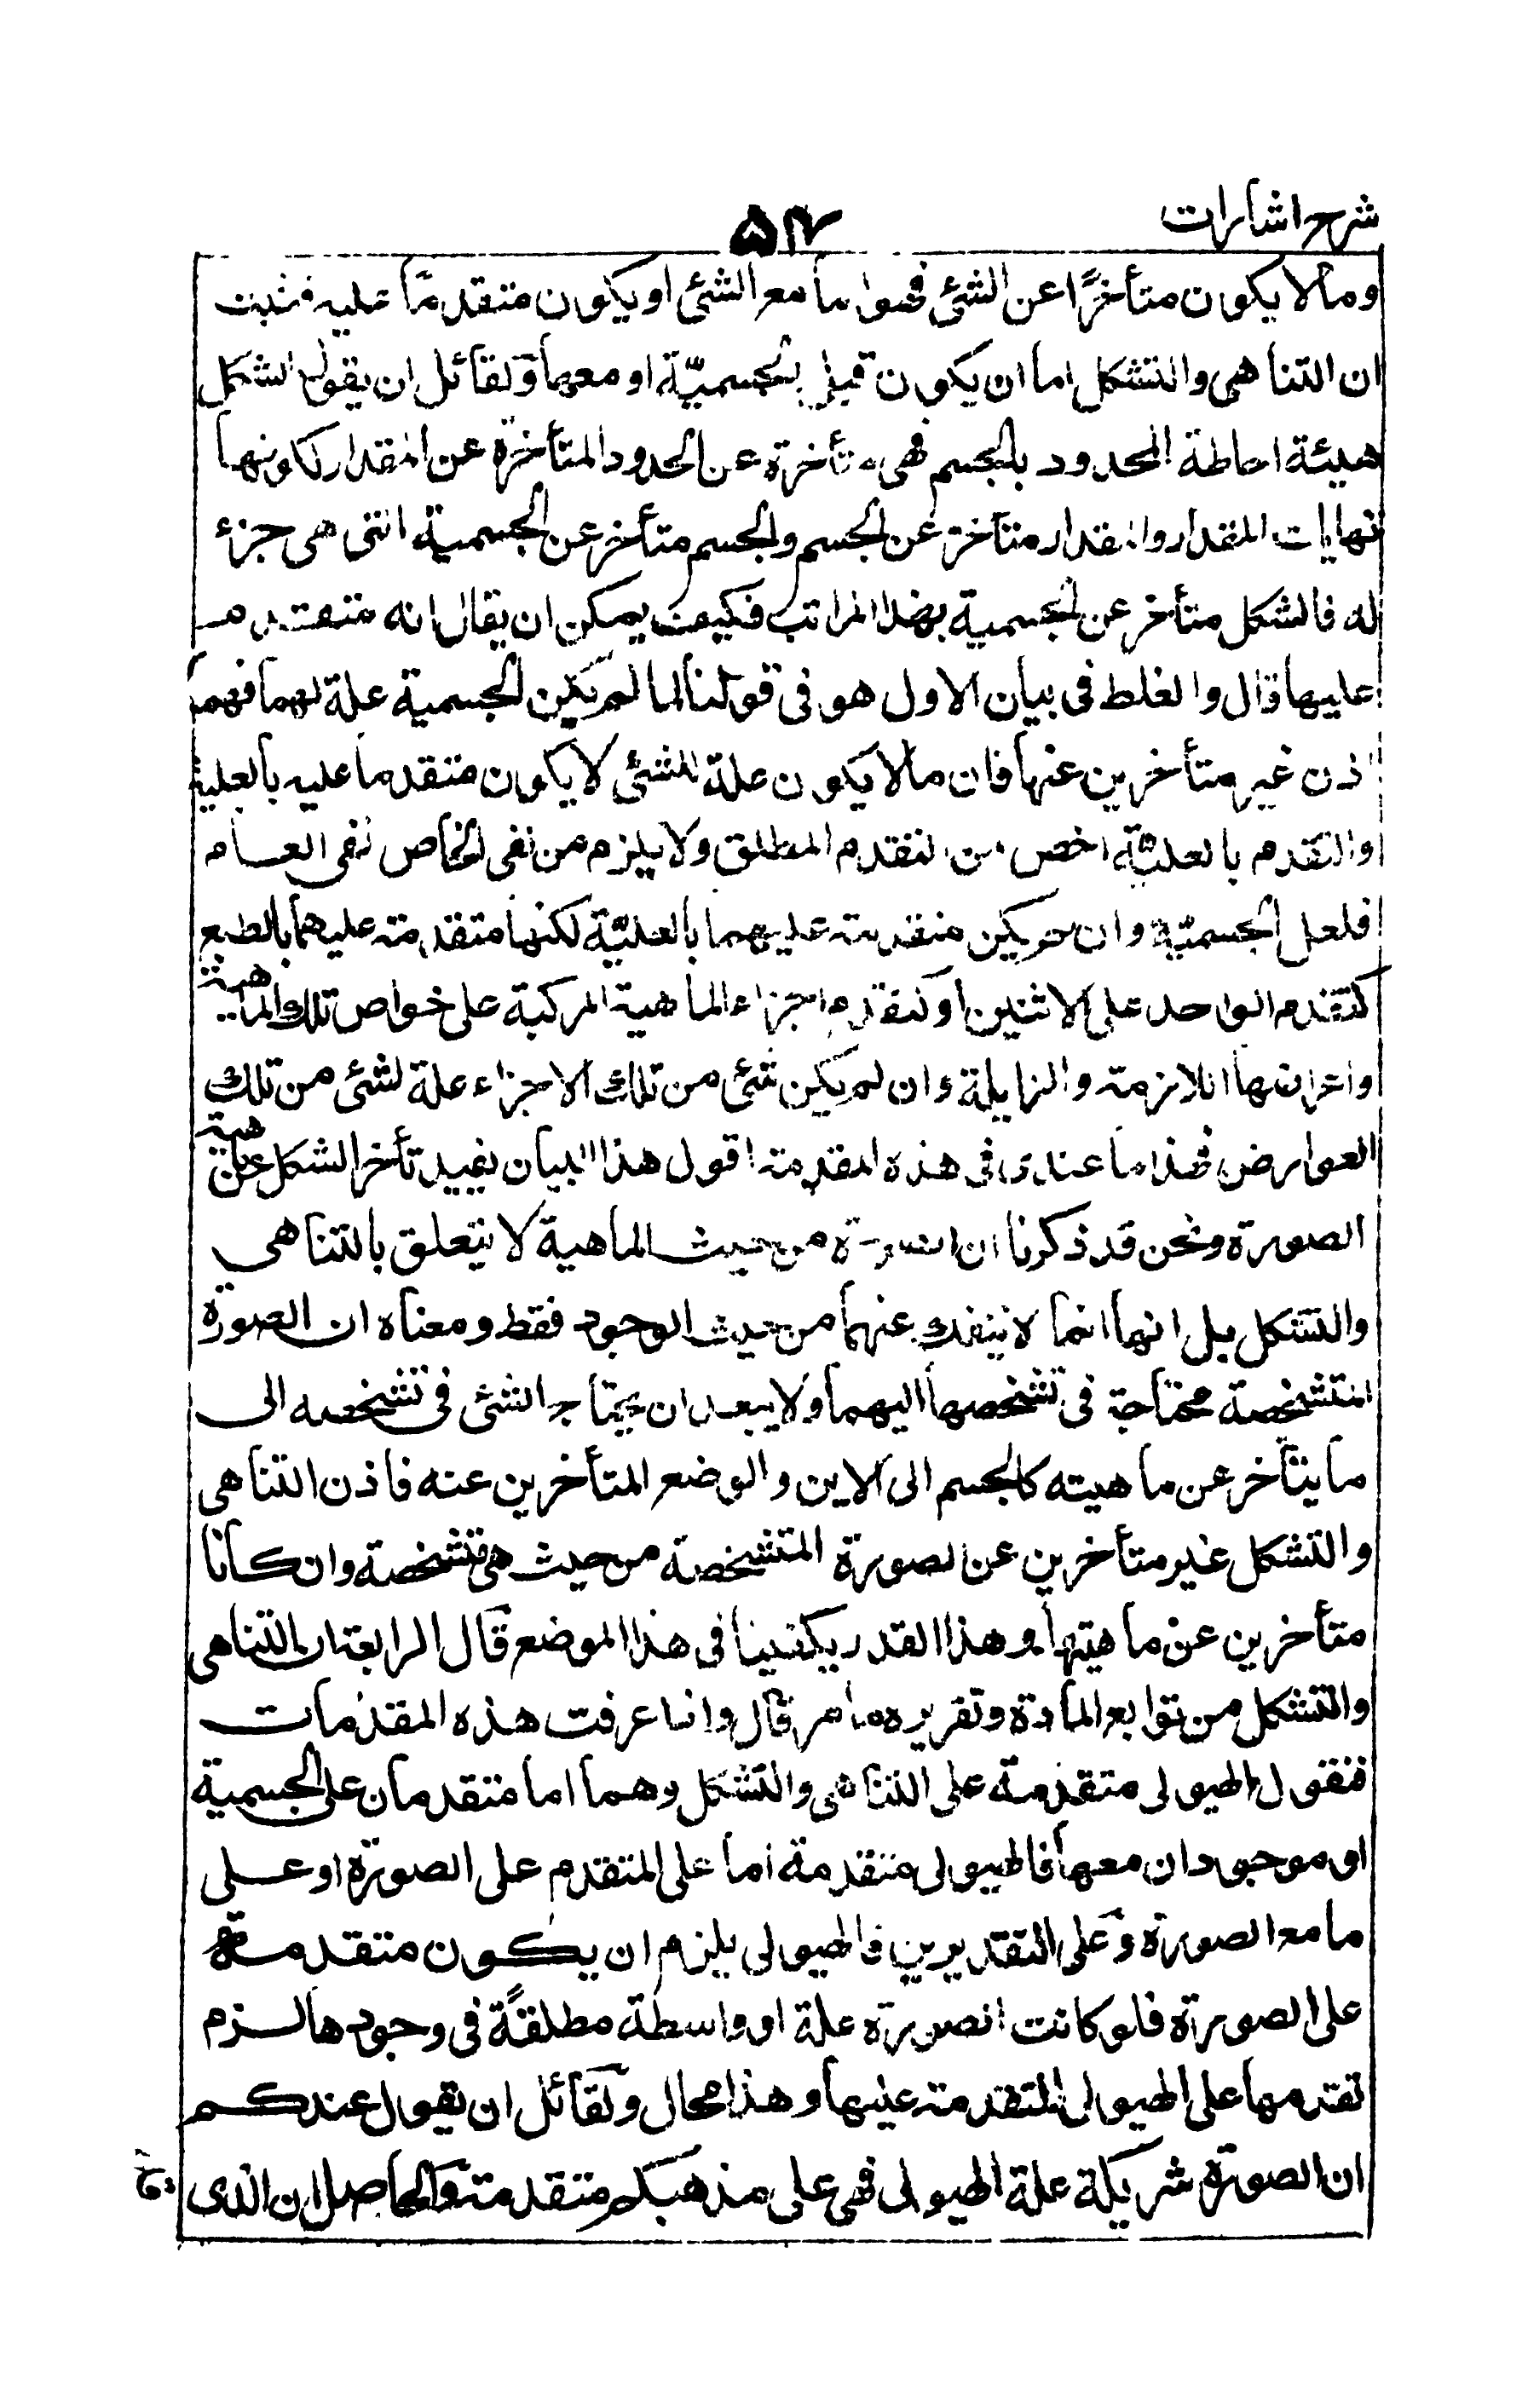 شرح اشارات
۵۴
وما لا يكون متأخرًا عن الشئ فهوا ما مع الشئ او يكون متقدمًا عليه فثبت
ان التناهى والتشكل اما ان يكون قبل الجسميّة او معها ولقائل ان يقول الشكل
هيئة احاطة الحدود بالجسم فهى متأخرة عن الحدود المتأخرة عن المقدار لكونها
نهايات المقدار والمقدار متأخر عن الجسم والجسم متأخر عن الجسمية التى هى جزء
له فالشكل متأخر عن الجسمية بهذا المراتب فكيف يمكن ان يقال انه متقدم
عليها قال والغلط فى بيان الاول هو فى قولنا لما لم يكن الجسمية علة لهما فهما
اذن غير متأخرين عنها فان ما لا يكون علة للشئ لا يكون متقدما عليه بالعلية
والتقدم بالعليّة اخص من التقدم المطلق ولا يلزم من نفى الخاص نفى العام
فلعل الجسميّة وان لم يكن متقدمة عليهما بالعليّة لكنها متقدمة عليهما بالطبع
كتقدم الواحد على الاثنين او كتقدم اجزاء الماهية المركبة على خواص تلك الماهية
واعراضها اللازمة والزايلة وان لم يكن شئ من تلك الاجزاء علة لشئ من تلك
العوارض فهذا ما عندى فى هذه المقدمة اقول هذا البيان يفيد تأخر الشكل عن ماهية
الصورة ونحن قد ذكرنا ان الصورة من حيث الماهية لا يتعلق بالتناهى
والتشكل بل انها انما لا ينفك عنهما من حيث الوجود فقط ومعناه ان الصورة
المتشخصة محتاجة فى تشخصها اليهما ولا يبعد ان يحتاج الشئ فى تشخصه الى
ما يتأخر عن ماهيته كالجسم الى الاين والوضع المتأخرين عنه فاذن التناهى
والتشكل غير متأخرين عن الصورة المتشخصة من حيث هى متشخصة وان كانا
متأخرين عن ماهيتها وهذا القدر يكفينا فى هذا الموضع قال الرابعة ان التناهى
والتشكل من توابع المادة وتقريره ما مر قال واذا عرفت هذه المقدمات
فنقول الهيولى متقدمة على التناهى والتشكل وهما اما متقدمان على الجسمية
او موجودان معها فالهيولى متقدمة اما على المتقدم على الصورة او على
ما مع الصورة وعلى التقديرين فالهيولى يلزم ان يكون متقدمة
على الصورة فلو كانت الصورة علة او واسطة مطلقةً فى وجودها لزم
تقدمها على الهيولى المتقدمة عليها وهذا محال ولقائل ان يقول عندكم
ان الصورة شريكة علة الهيولى فهى على مذهبكم متقدمة والحاصل ان الذى